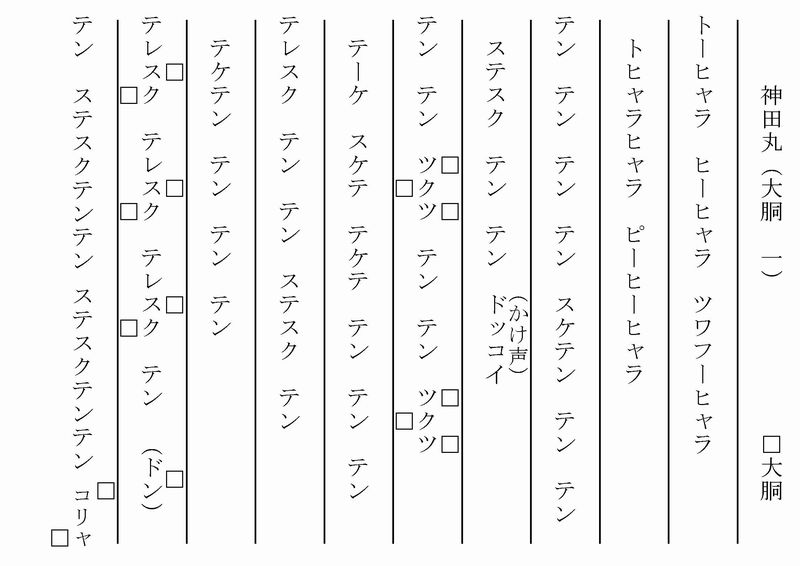 神田丸（大胴　一）　□大胴
トーヒャラ　ヒーヒャラ　ツワフーヒャラ
トヒャラヒャラ　ピーヒーヒャラ
テン　テン　テン　テン　スケテン　テン　テン
ステスク　テン　テン　ドッコイ（かけ声）
テン　テン　ツクツ　テン　テン　ツクツ
テーケ　スケテ　テケテ　テン　テン　テン
テレスク　テン　テン　ステスク　テン
テケテン　テン　テン　テン
テレスク　テレスク　テレスク　テン　（ドン）
テン　ステスクテンテン　ステスクテンテン　コリャ